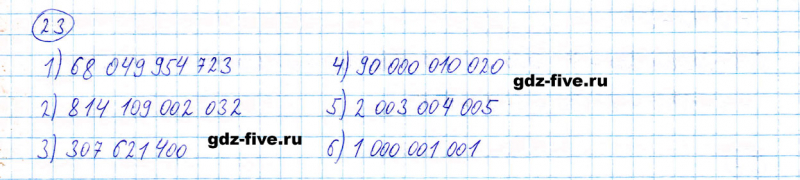 23
1) 68 049 954 723
2) 814 109 002 032
3) 307 621 400
4) 90 000 010 020
5) 2 003 004 005
6) 1 000 001 001
gdz-five.ru
gdz-five.ru